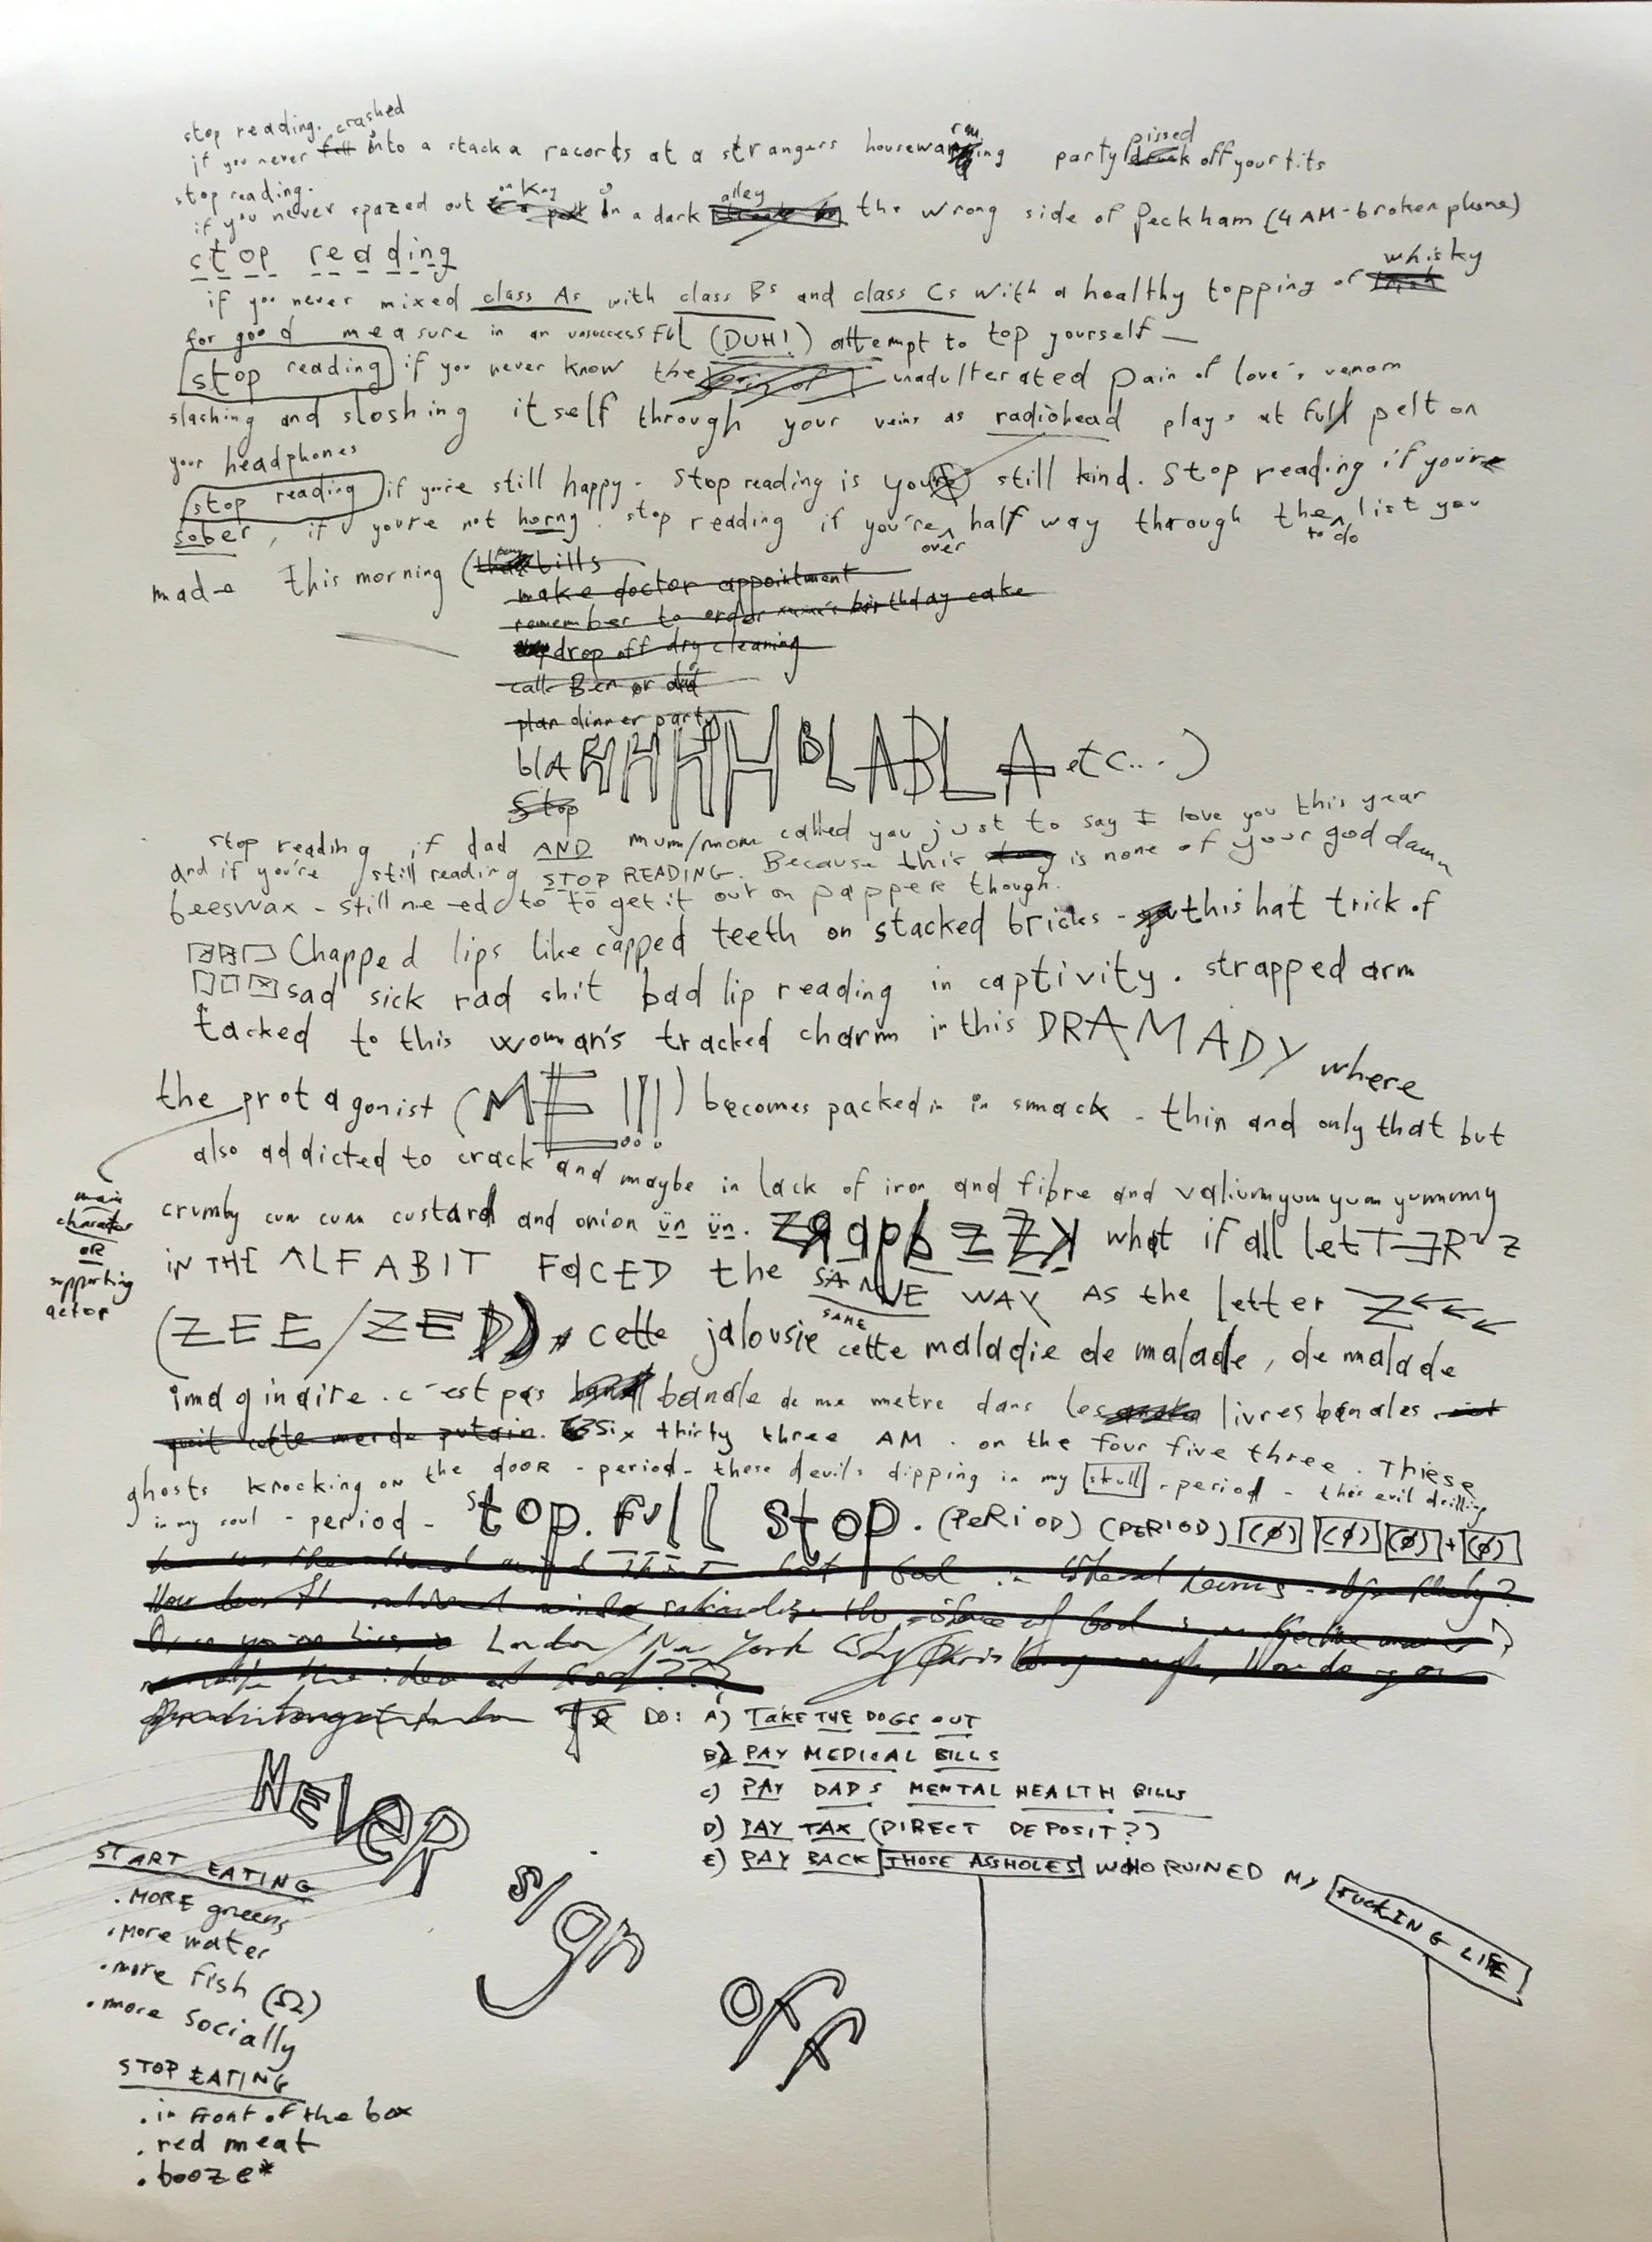 stop reading. crashed
if you never fell into a stack a records at a strangers housewarming party pissed off your tits
stop reading.
if you never spazed out on Key in a dark alley the wrong side of Peckham (4 AM - broken phone)
stop reading
if you never mixed class As with class Bs and class Cs with a healthy topping of whisky
for good measure in an unsuccessful (DUH!) attempt to top yourself —
stop reading if you never know the unadulterated pain of love's venom
slashing and sloshing itself through your veins as radiohead plays at full pelt on
your headphones
stop reading if you're still happy. Stop reading is you still kind. Stop reading if you're
sober, if you're not horny. stop reading if you're over half way through the to do list you
made this morning (bills
make doctor appointment
remember to order birthday cake
drop off dry cleaning
call Ben or dad
plan dinner party
blA HHHH BLABLA etc...)
Stop
stop reading if dad AND mum/mom called you just to say I love you this year
And if you're still reading STOP READING. Because this is none of your god damn
beeswax - still need to to get it out on papper though.
Chapped lips like capped teeth on stacked bricks - this hat trick of
sad sick rad shit bad lip reading in captivity. strapped arm
tacked to this woman's tracked charm in this DRAMADY where
the protagonist (ME!!!) becomes packed in in smack - thin and only that but
also addicted to crack and maybe in lack of iron and fibre and valiumyumyum yummmy
main
character
OR
supporting
actor
crumby cum cum custard and onion ün ün. what if all letTERZ
IN THE ALFABIT FACED the SAME WAY AS the letter Z
SAME
(ZEE/ZED), cette jalousie cette maladie de malade, de malade
imaginaire. c'est pas banale de me metre dans les livres banales
cette merde putain. Six thirty three AM. on the four five three. Thiese
ghosts knocking on the dooR - period - these devils dipping in my skull - period - this evil drilling
in my soul - period - stop. full stop. (PERiOD) (PERIOD) (∅) (∅) (∅) + (∅)
London / New York City / Paris
To DO: A) TAKE THE DOGS OUT
B) PAY MEDICAL BILLS
C) PAY DADS MENTAL HEALTH BILLS
D) PAY TAX (DIRECT DEPOSIT?)
E) PAY BACK THOSE ASSHOLES WHO RUINED MY FUCKING LIFE
NEVER
sign
off
START EATING
. MORE greens
. More water
. more fish (Ω)
. more socially
STOP EATING
. in front of the box
. red meat
. booze*